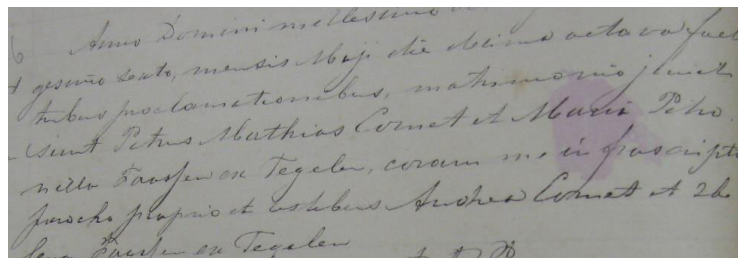 Anno Domini millesimo
gesimo sexto, mensis Maji die decima octava fact
tribus proclamationibus, matrimonio juncti
sunt Petrus Mathias Cornet et Maria Petro
nilla Faassen ex Tegelen, coram me infrascripto
parocho proprio et testibus Andrea Cornet et
Faassen ex Tegelen